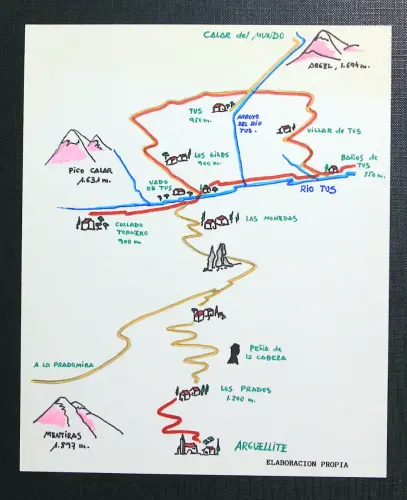 CALAR del MUNDO
ARGEL, 1.694 m.
TUS
950 m.
ARROYO
DEL RÍO
TUS.
VILLAR de TUS
LOS GILES
900 m.
PICO CALAR
1.631 m.
BAÑOS de
TUS
VADO
DE TUS
RÍO TUS
COLLADO
TORNERO
900 m.
LAS MONEDAS
PEÑA de
la CABEZA
A LA PRADOMIRA
LOS PRADOS
1.200 m.
MENTIRAS
1.897 m.
ARGUELLITE
ELABORACION PROPIA